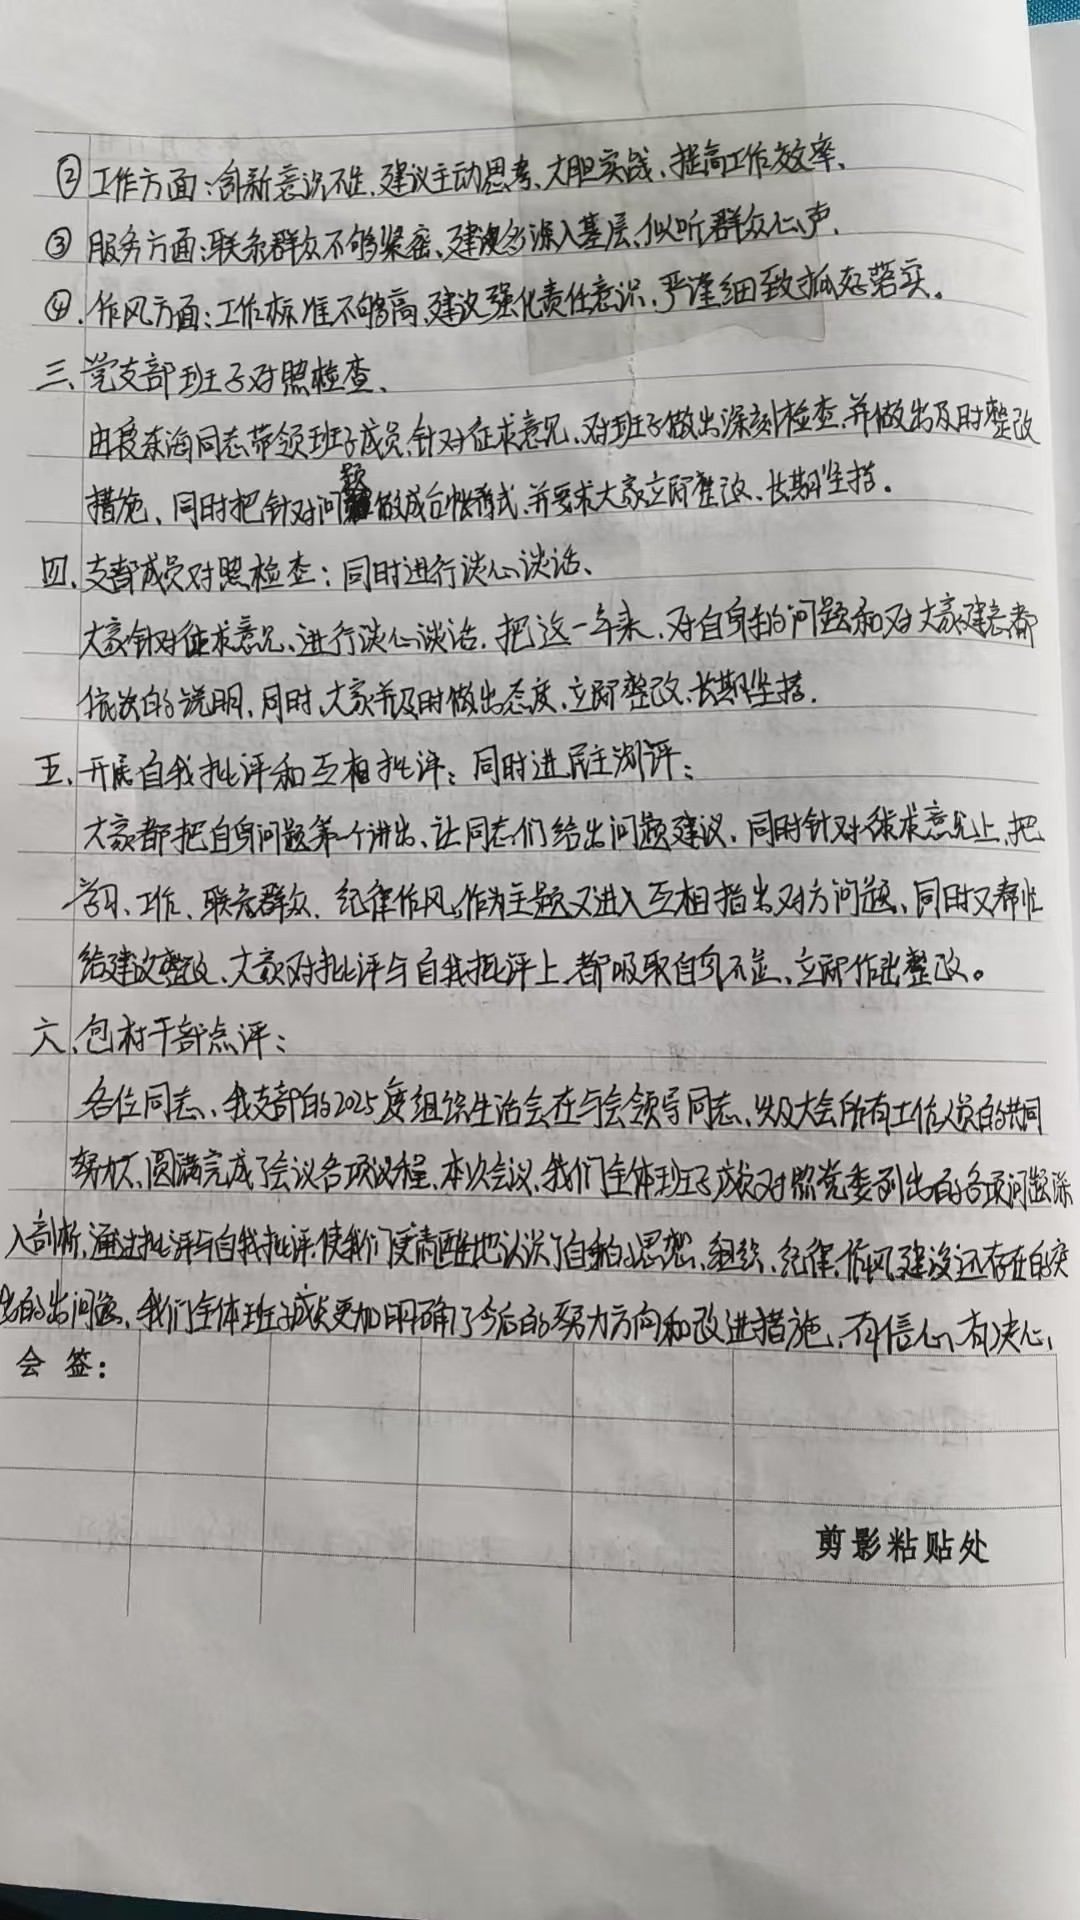 ②工作方面：创新意识不足、建议主动思考、大胆实战、提高工作效率、
③服务方面：联系群众不够紧密、建议多深入基层、倾听群众心声、
④、作风方面：工作标准不够高、建议强化责任意识、严谨细致抓好落实。
三、党支部班子对照检查、
由 东海同志带领班子成员、针对征求意见、对班子做出深刻检查、并做出及时整改
措施、同时把针对问题做成台帐形式、并要求大家立即整改、长期坚持。
四、支部成员对照检查：同时进行谈心谈话、
大家针对征求意见、进行谈心谈话、把这一年来、对自身的问题和对大家建言都
依次的说明、同时、大家并及时做出态度、立即整改、长期坚持。
五、开展自我批评和互相批评：同时进民主测评：
大家都把自身问题第一个讲出、让同志们给出问题建议、同时针对征求意见上、把
学习、工作、联系群众、纪律作风、作为主题又进入互相指出对方问题、同时又帮忙
给建议整改、大家对批评与自我批评上、都吸取自身不足、立即作出整改。
六、包村干部点评：
各位同志、我支部的2025度组织生活会在与会领导同志、以及大会所有工作人员的共同
努力下、圆满完成了会议各项议程、本次会议、我们全体班子成员对照党委列出的各项问题深
入剖析、通过批评与自我批评、使我们更清醒地认识了自身的思想、组织、纪律、作风、建设还存在的突
出的出问题、我们全体班子成员更加明确了今后的努力方向和改进措施、有信心、有决心、
会 签：
剪影粘贴处